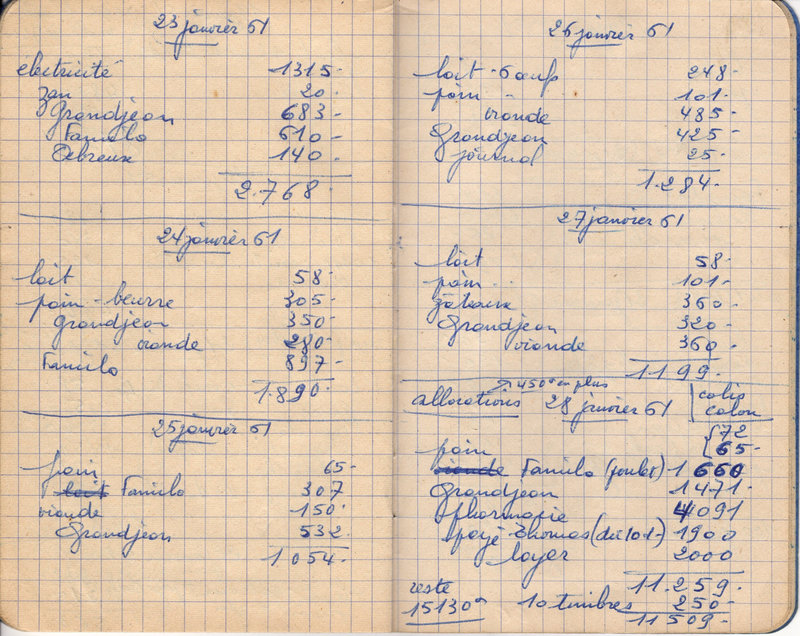 23 janvièr 61
electricité 1315.
zan 20.
Grandjean 683 -
Familo 610 -
Debreux 140.
2.768.
24 janvièr 61
lait 58.
pain - beurre 305 -
grandjean 350 -
viande 280 -
Familo 897 -
1.890.
25 janvièr 61
pain 65 -
lait Familo 307
viande 150.
Grandjean 532.
1.054.
26 janvièr 61
lait - 6 œufs 248 -
pain - 101 -
viande 485 -
Grandjean 425 -
journal 25.
1.284.
27 janvièr 61
lait 58.
pain 101 -
gâteaux 360 -
Grandjean 320 -
viande 360 -
1199.
450 en plus
allocations 28 janvièr 61
colis
colon
72
pain 65 -
viande Familo (poulet) 1660
Grandjean 1471.
pharmacie 4091
payé Thomas (dû 10.17) 1900
loyer 2000
11.259.
reste
15130 10 timbres 250 -
11509.